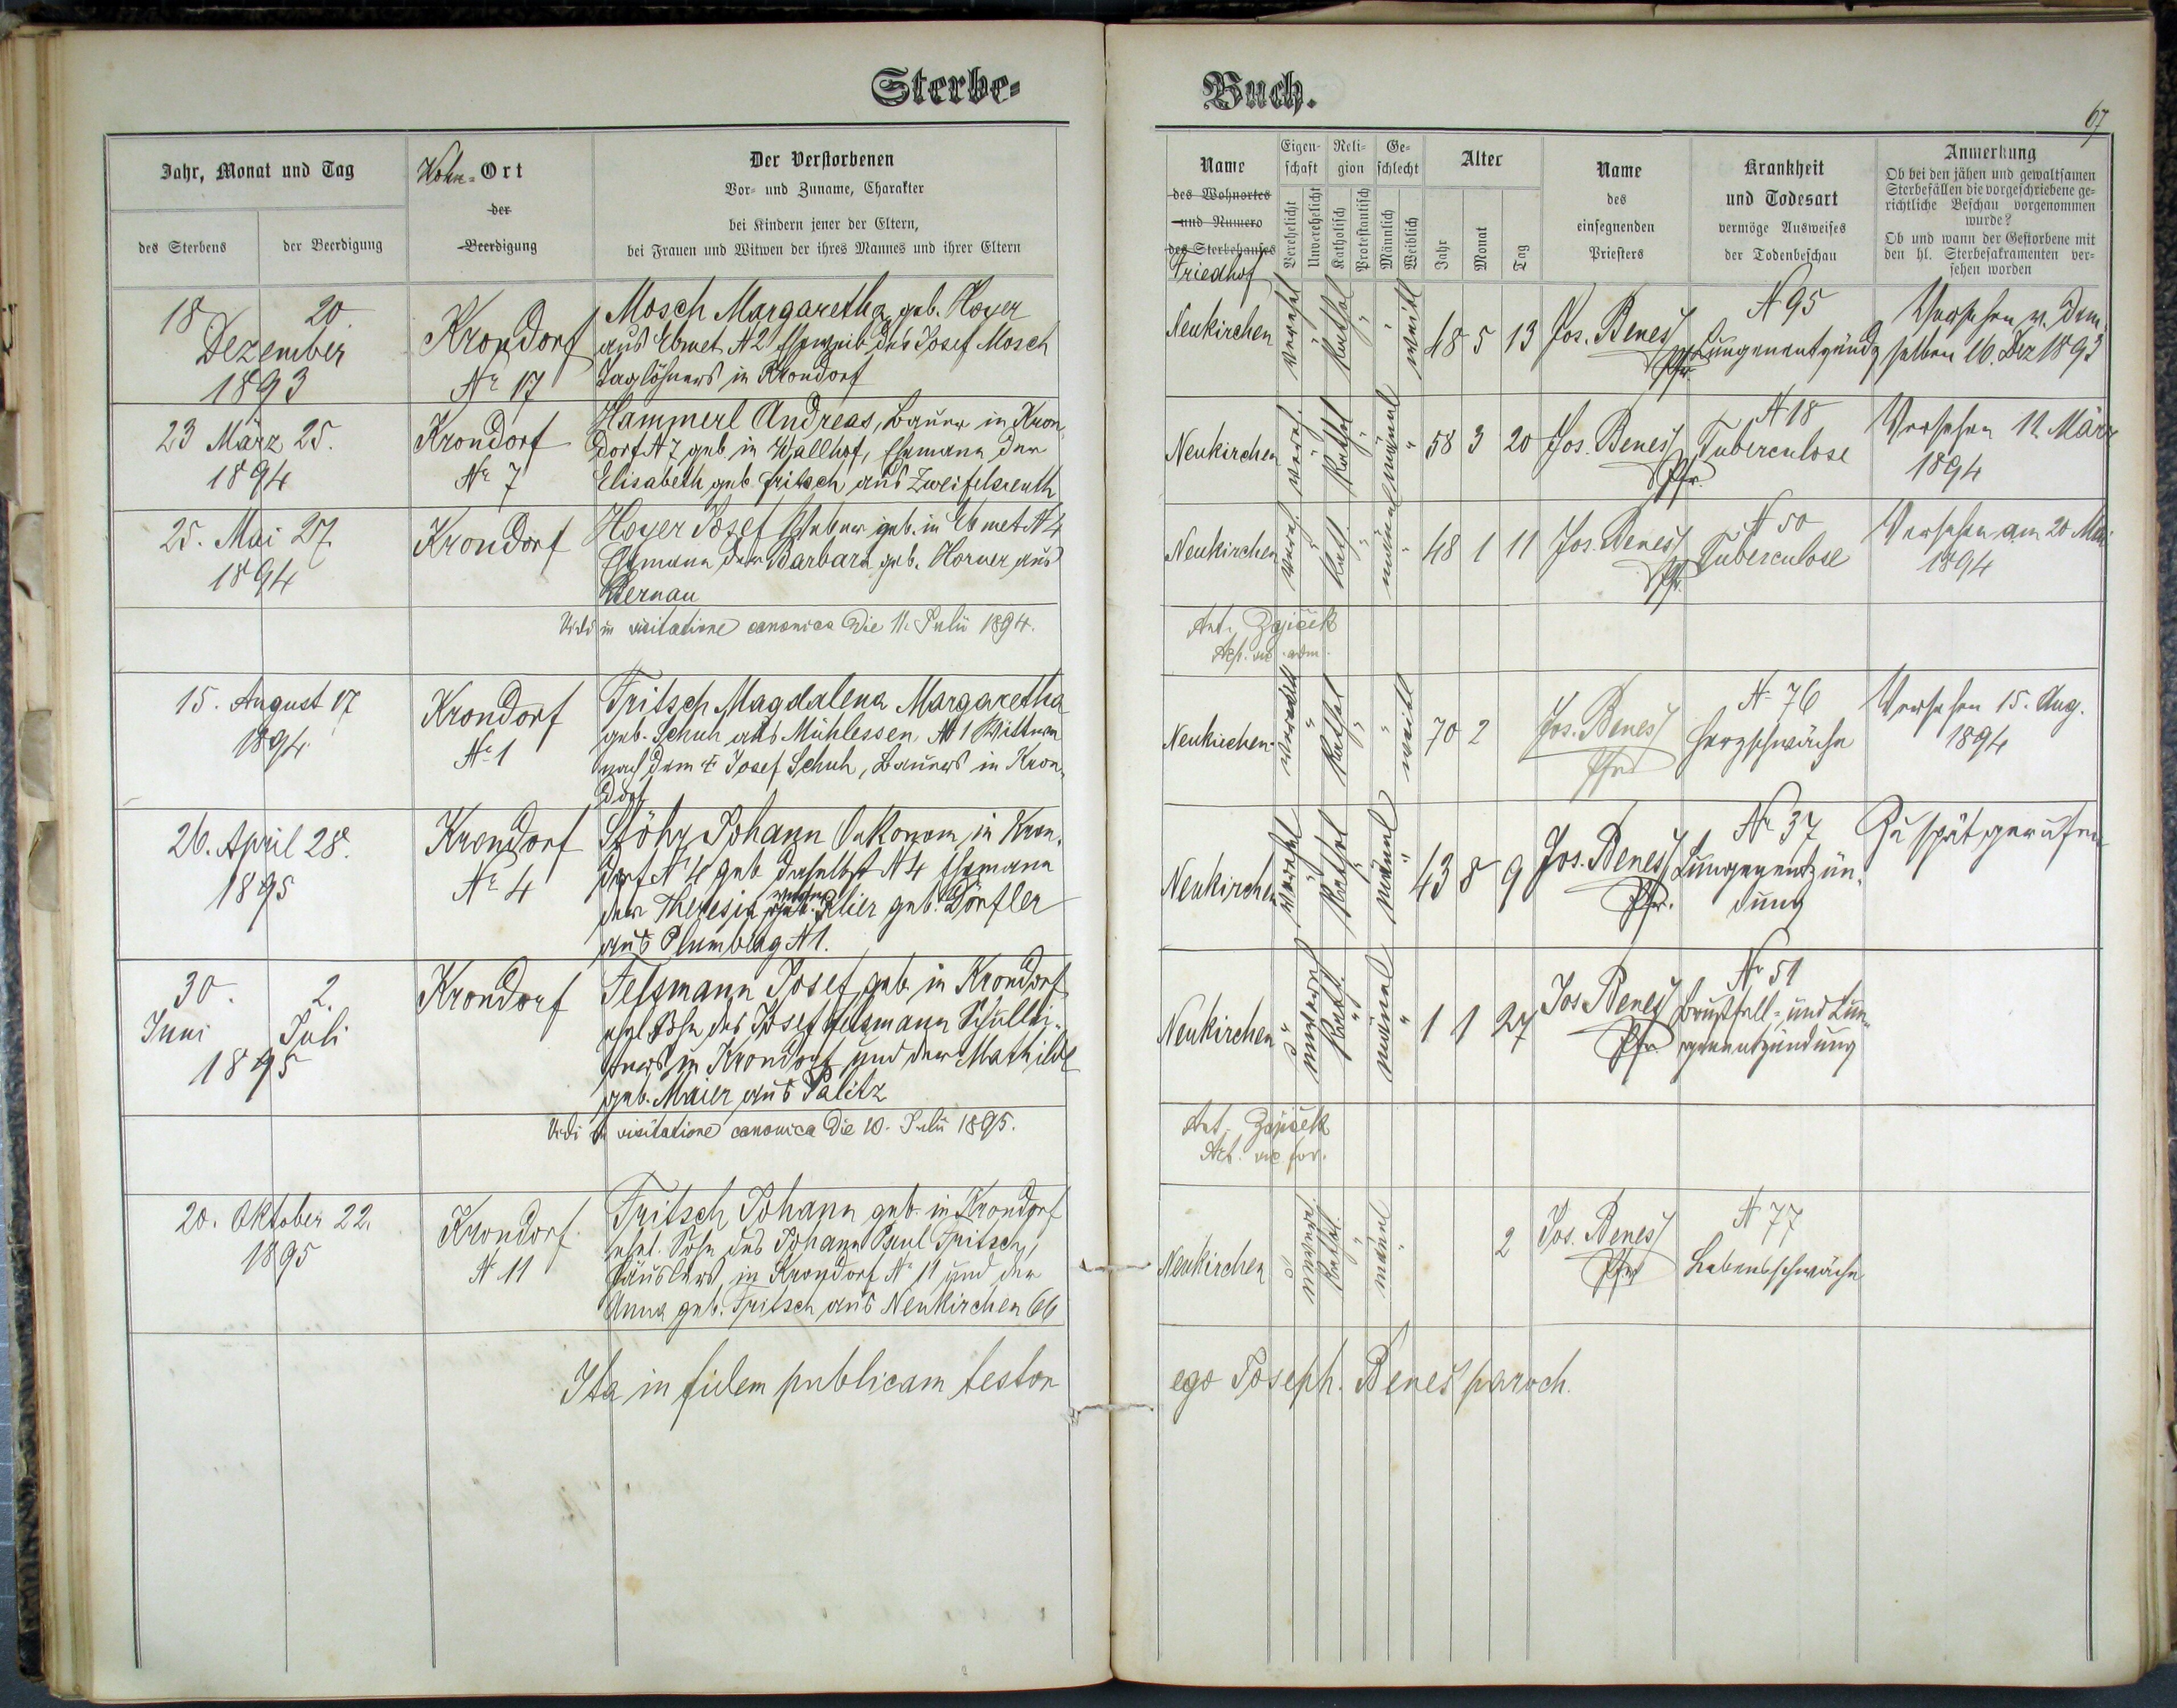 Sterbe-
Jahr, Monat und Tag
des Sterbens
der Beerdigung
Wohn-Ort
der
Beerdigung
Der Verstorbenen
Vor- und Zuname, Charakter
bei Kindern jener der Eltern,
bei Frauen und Witwen der ihres Mannes und ihrer Eltern
18 20.
Dezember
1893
Krondorf
Nr 17
Mosch Margaretha, geb. Hoyer
aus Ebmet N 2 Eheweib des Josef Mosch
Taglöhners in Krondorf
23 März 25.
1894
Krondorf
Nr 7
Hammerl Andreas, Bauer in Kron-
dorf N 7 geb. in Wallhof, Ehemann der
Elisabeth geb. Fritsch aus Zweifelsreuth
25. Mai 27.
1894
Krondorf
Hoyer Josef Weber geb. in Ebmet N 4
Ehemann der Barbara geb. Horner aus
Pernau
Vidi in visitatione canonica die 11. Julii 1894.
15. August 17
1894
Krondorf
Nr 1
Fritsch Magdalena Margaretha
geb. Schuh aus Mühlessen N 1 Wittwe
nach dem † Josef Schuh, Bauers in Kron-
dorf
26. April 28.
1895
Krondorf
Nr 4
Stöhr Johann Oekonom in Kron-
dorf N 4 geb. daselbst N 4 Ehemann
der Theresia Klier geb. Dörfler
aus Plumberg N 1.
30. 2.
Juni Juli
1895
Krondorf
Felsmann Josef geb. in Krondorf
ehel. Sohn des Josef Felsmann Schullei-
ters in Krondorf und der Mathilde
geb. Maier aus Palitz
Vidi in visitatione canonica die 10. Julii 1895.
20. Oktober 22.
1895
Krondorf
N 11
Fritsch Johann geb. in Krondorf
ehel. Sohn des Johann Paul Fritsch,
Häuslers, in Krondorf Nr 11 und der
Anna geb. Fritsch aus Neukirchen 66
Ita in fidem publicam testor
Buch.
67
Name
des Wohnortes
und Numero
des Sterbehauses
Friedhof
Eigenschaft
Verehelicht
Unverehelicht
Religion
Katholisch
Protestantisch
Geschlecht
Männlich
Weiblich
Alter
Jahr
Monat
Tag
Name
des
einsegnenden
Priesters
Krankheit
und Todesart
vermöge Ausweises
der Todenbeschau
Anmerkung
Ob bei den jähen und gewaltsamen
Sterbefällen die vorgeschriebene ge-
richtliche Beschau vorgenommen
wurde?
Ob und wann der Gestorbene mit
den hl. Sterbesakramenten ver-
sehen worden
Neukirchen verehel " Kathol " " weibl 48 5 13 Jos. Beneš
Pfr.
N 95
Lungenentzündg
Versehen v. dem-
selben 16. Dez 1893
Neukirchen vereh. " Kathol " männl " 58 3 20 Jos. Beneš
Pfr.
N 18
Tuberculose
Versehen 12 März
1894
Neukirchen vereh. " Kath. " männl " 48 1 11 Jos. Beneš
Pfr.
N 50
Tuberculose
Versehen am 20 Mai
1894
Ant. Zajiček
Neukirchen " Kathol " " weibl 70 2 Jos. Beneš
Pfr
N 76
Herzschwäche
Versehen 15. Aug.
1894
Neukirchen verehel " Kathol " männl " 43 8 9 Jos. Beneš
Pfr.
Nr 37
Lungenentzün-
dung
Zu spät gerufen
Neukirchen " unvereh Kath. " männl " 1 1 27 Jos. Beneš
Pfr.
Nr 51
Brustfell- und Lun-
genentzündung
Ant. Zajiček
Neukirchen unvere. Kathol. " männl " 2 Jos. Beneš
Pfr
N 77
Lebensschwäche
ego Joseph. Beneš paroch.